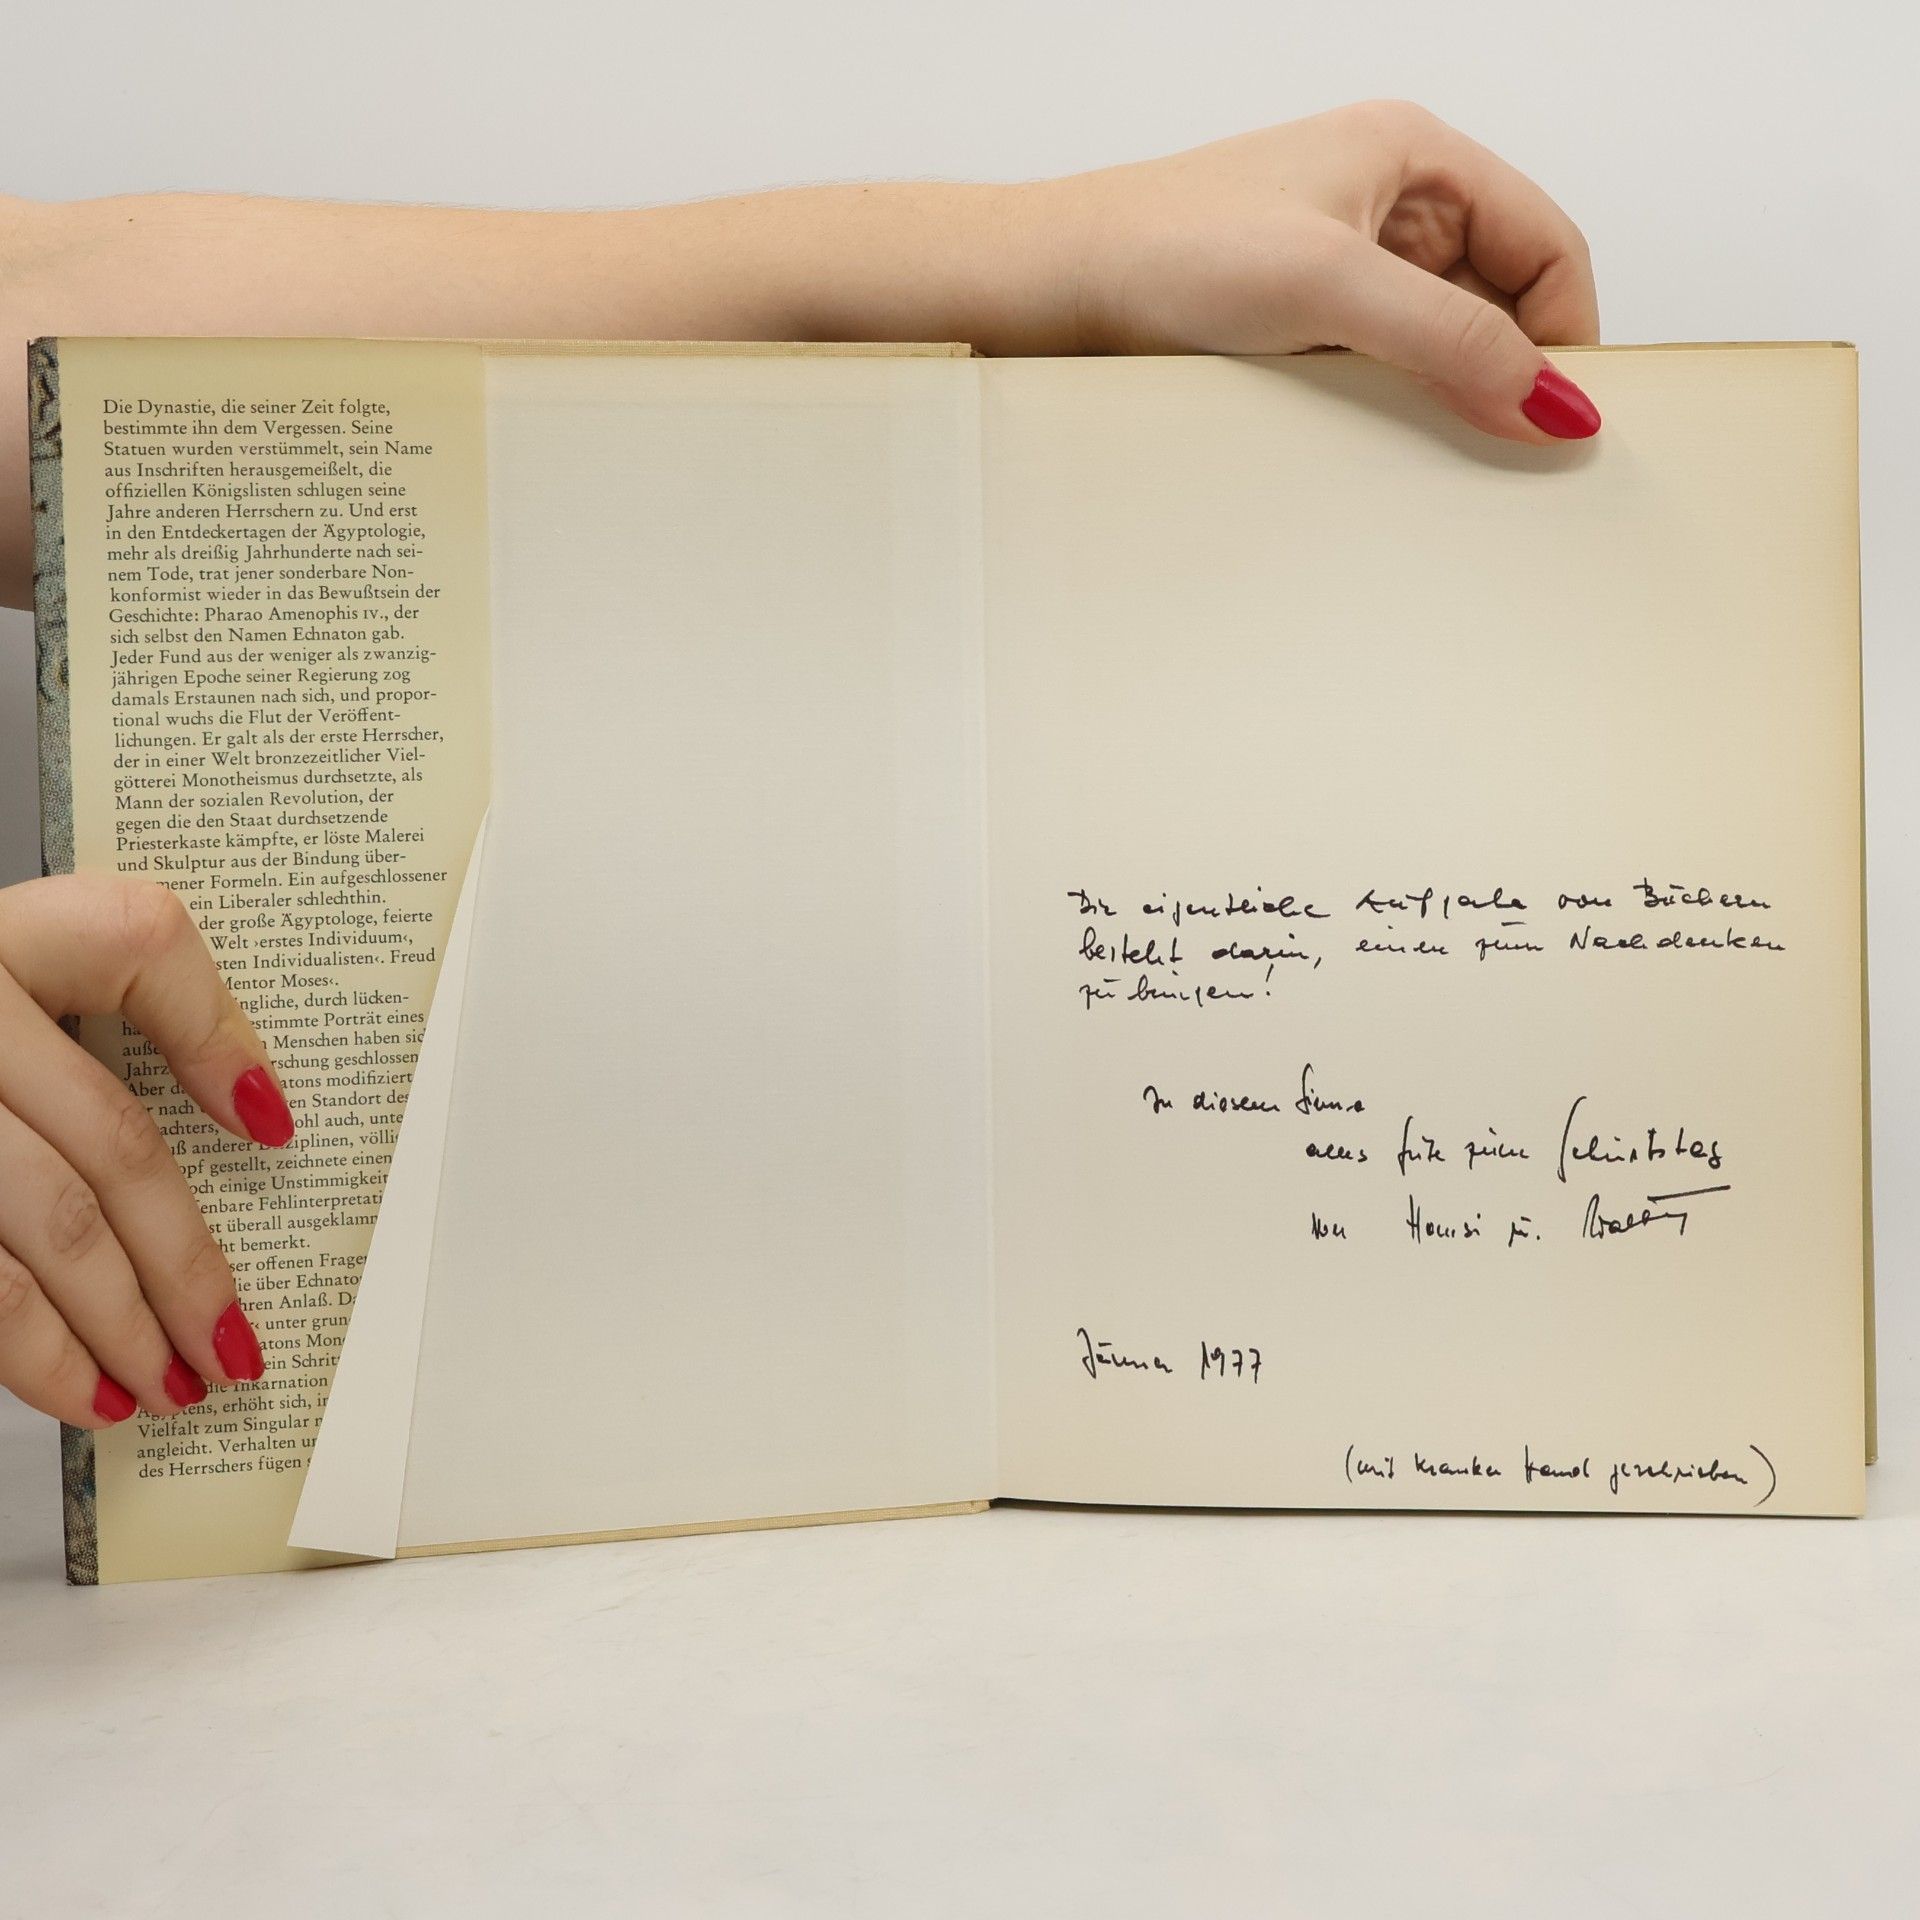 Die Dynastie, die seiner Zeit folgte,
bestimmte ihn dem Vergessen. Seine
Statuen wurden verstümmelt, sein Name
aus Inschriften herausgemeißelt, die
offiziellen Königslisten schlugen seine
Jahre anderen Herrschern zu. Und erst
in den Entdeckertagen der Ägyptologie,
mehr als dreißig Jahrhunderte nach sei-
nem Tode, trat jener sonderbare Non-
konformist wieder in das Bewußtsein der
Geschichte: Pharao Amenophis IV., der
sich selbst den Namen Echnaton gab.
Jeder Fund aus der weniger als zwanzig-
jährigen Epoche seiner Regierung zog
damals Erstaunen nach sich, und propor-
tional wuchs die Flut der Veröffent-
lichungen. Er galt als der erste Herrscher,
der in einer Welt bronzezeitlicher Viel-
götterei Monotheismus durchsetzte, als
Mann der sozialen Revolution, der
gegen die den Staat durchsetzende
Priesterkaste kämpfte, er löste Malerei
und Skulptur aus der Bindung über-
mener Formeln. Ein aufgeschlossener
ein Liberaler schlechthin.
der große Ägyptologe, feierte
Welt ›erstes Individuum‹,
sten Individualisten‹. Freud
Mentor Moses‹.
ngliche, durch lücken-
estimmte Porträt eines
Menschen haben sic
Jahrz rschung geschlossen
Aber d atons modifiziert
r nach en Standort des
achters, ohl auch, unte
uß anderer Disziplinen, völli
opf gestellt, zeichnete einen
och einige Unstimmigkeit
enbare Fehlinterpretati
st überall ausgeklamm
ht bemerkt.
ser offenen Frage
ie über Echnato
hren Anlaß. Da
‹ unter grun
atons Mon
ein Schrit
die Inkarnation
Ägyptens, erhöht sich, in
Vielfalt zum Singular
angleicht. Verhalten u
des Herrschers fügen
Die eigentliche Aufgabe von Büchern
besteht darin, einen zum Nachdenken
zu bringen!
In diesem Sinne
alles Gute zum Geburtstag
von Hansi jr.
Jänner 1977
(mit kranker Hand geschrieben)